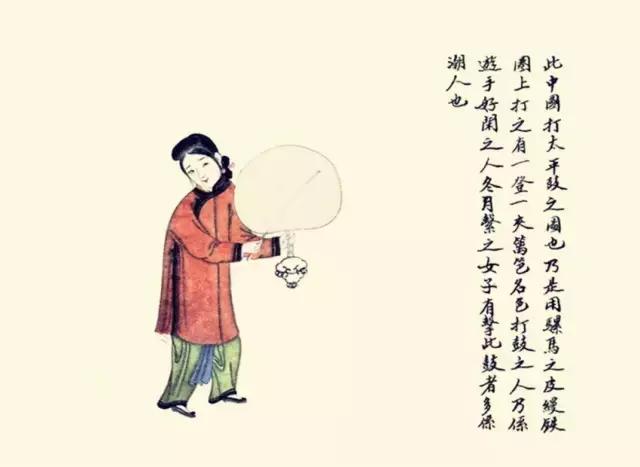 此中國打太平鼓之圖也乃是用騾馬之皮縵鉄
圈上打之有一登一夹篱笆名色打鼓之人乃係
遊手好閑之人冬月擊之女子有擊此鼓者多係
潮人也